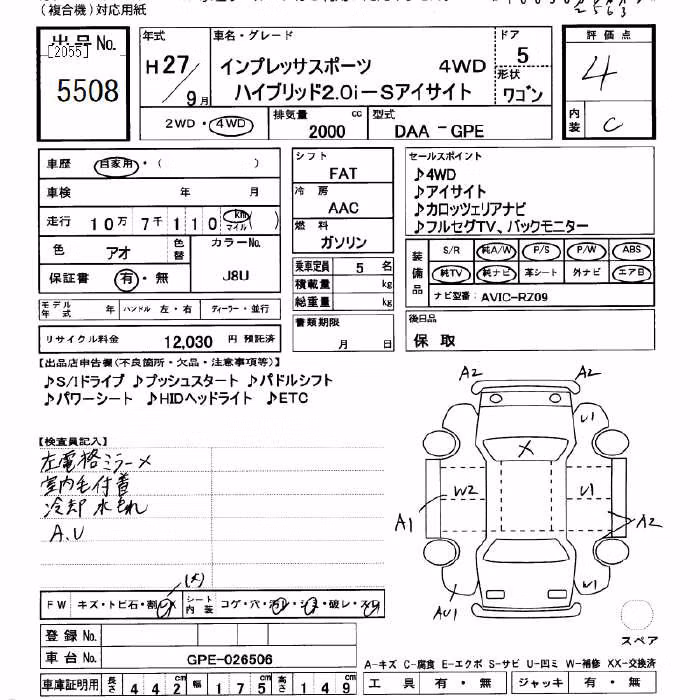 (複合機)対応用紙
2563
出品No.
[2055]
5508
年式
H27/9月
車名・グレード
インプレッサスポーツ 4WD
ハイブリッド2.0i-Sアイサイト
ドア
5
形状
ワゴン
2WD・4WD
排気量
2000 cc
型式
DAA-GPE
評価点
4
内装
C
車歴 自家用・( )
車検 年 月
走行 10万7千110 km マイル ( )
色 アオ 色替
カラーNo.
J8U
保証書 有・無
モデル年式 年 ハンドル 左・右 ディーラー・並行
リサイクル料金 12,030 円 預託済
シフト
FAT
冷房
AAC
燃料
ガソリン
乗車定員 5 名
積載量 kg
総重量 kg
書類期限
月 日
セールスポイント
♪4WD
♪アイサイト
♪カロッツェリアナビ
♪フルセグTV、バックモニター
装備品
S/R 純A/W P/S P/W ABS
純TV 純ナビ 革シート 外ナビ エアB
ナビ型番: AVIC-RZ09
後日品
保 取
【出品店申告欄(不良箇所・欠品・注意事項等)】
♪S/Iドライブ ♪プッシュスタート ♪パドルシフト
♪パワーシート ♪HIDヘッドライト ♪ETC
【検査員記入】
左電格ミラーメ
室内毛付着
冷却水もれ
A.U
(X)
FW キズ・トビ石・割・X シート内装 コゲ・穴・汚レ・シミ・破レ・スレ
登録No.
車台No. GPE-026506
車庫証明用 長さ 442 cm 幅 175 cm 高さ 149 cm
A2 A2
U1
X
W2 U1
A1 A2
AU1
スペア
A-キズ C-腐食 E-エクボ S-サビ U-凹ミ W-補修 XX-交換済
工具 有・無 ジャッキ 有・無